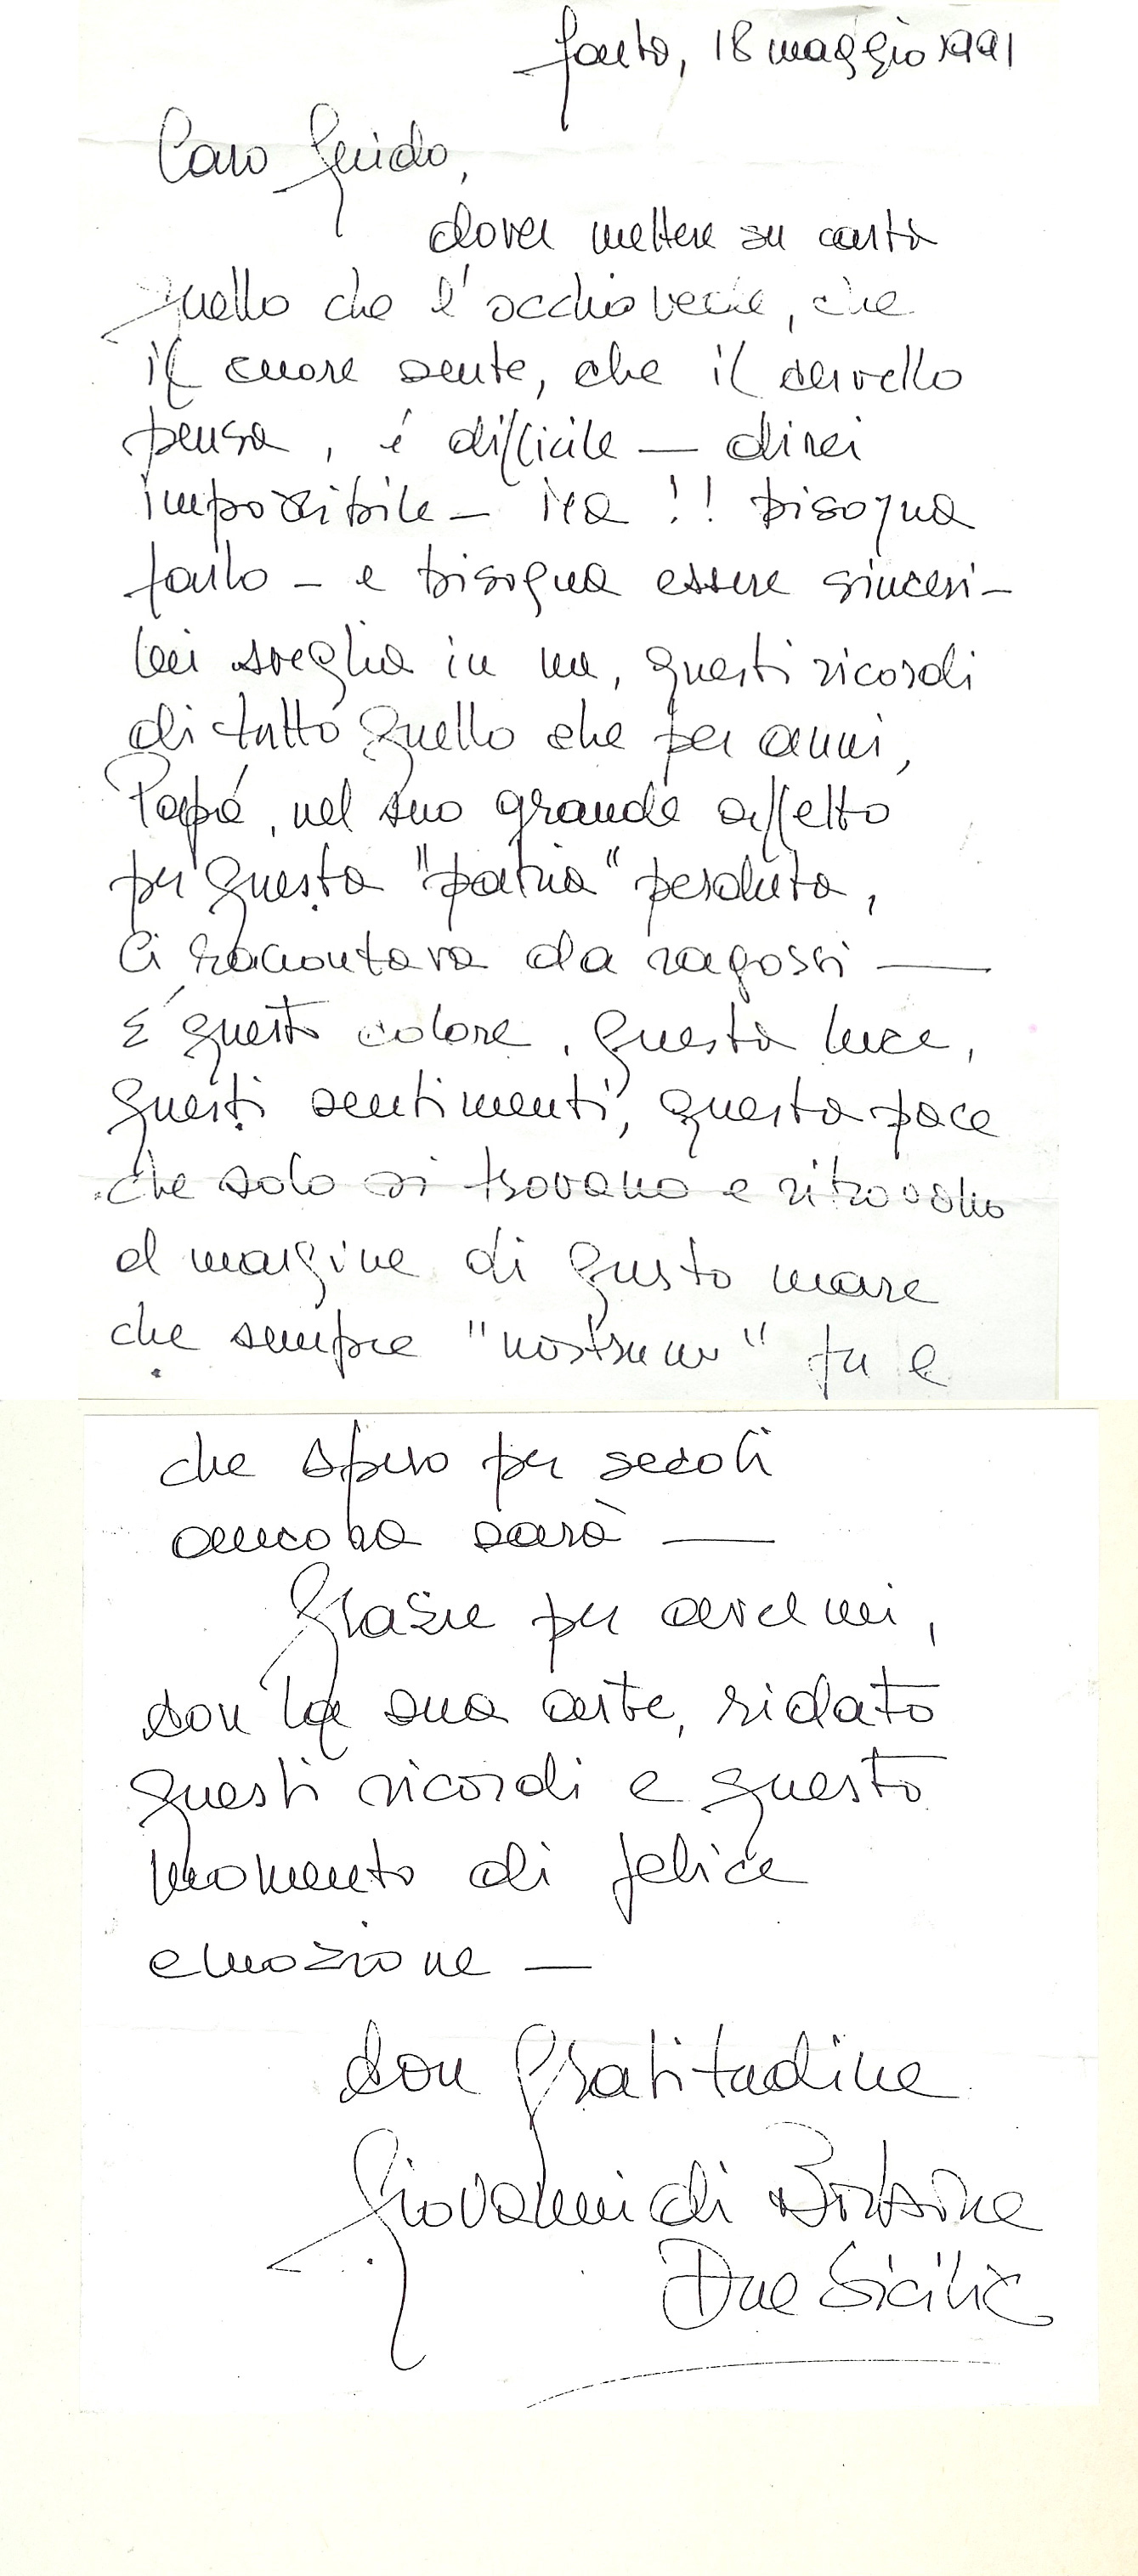 18 maggio 1991
Caro Guido,
dover mettere su carta
quello che l'occhio vede, che
il cuore sente, che il cervello
pensa, é difficile — direi
impossibile - Ma !! bisogna
farlo - e bisogna essere sinceri -
Lei sveglia in me, questi ricordi
di tutto quello che per anni,
Papá, nel suo grande affetto
per questa "patria" perduta,
Ci raccontava da ragazzi —
E' questo colore, questa luce,
questi sentimenti, questa pace
che solo si trovano e ritrovano
al margine di questo mare
che sempre "nostrum" fu e
che spero per secoli
ancora sarà —
Grazie per avermi,
con la sua arte, ridato
questi ricordi e questo
momento di felice
emozione —
Con Gratitudine
Giovanni di Borbone
Due Sicilie